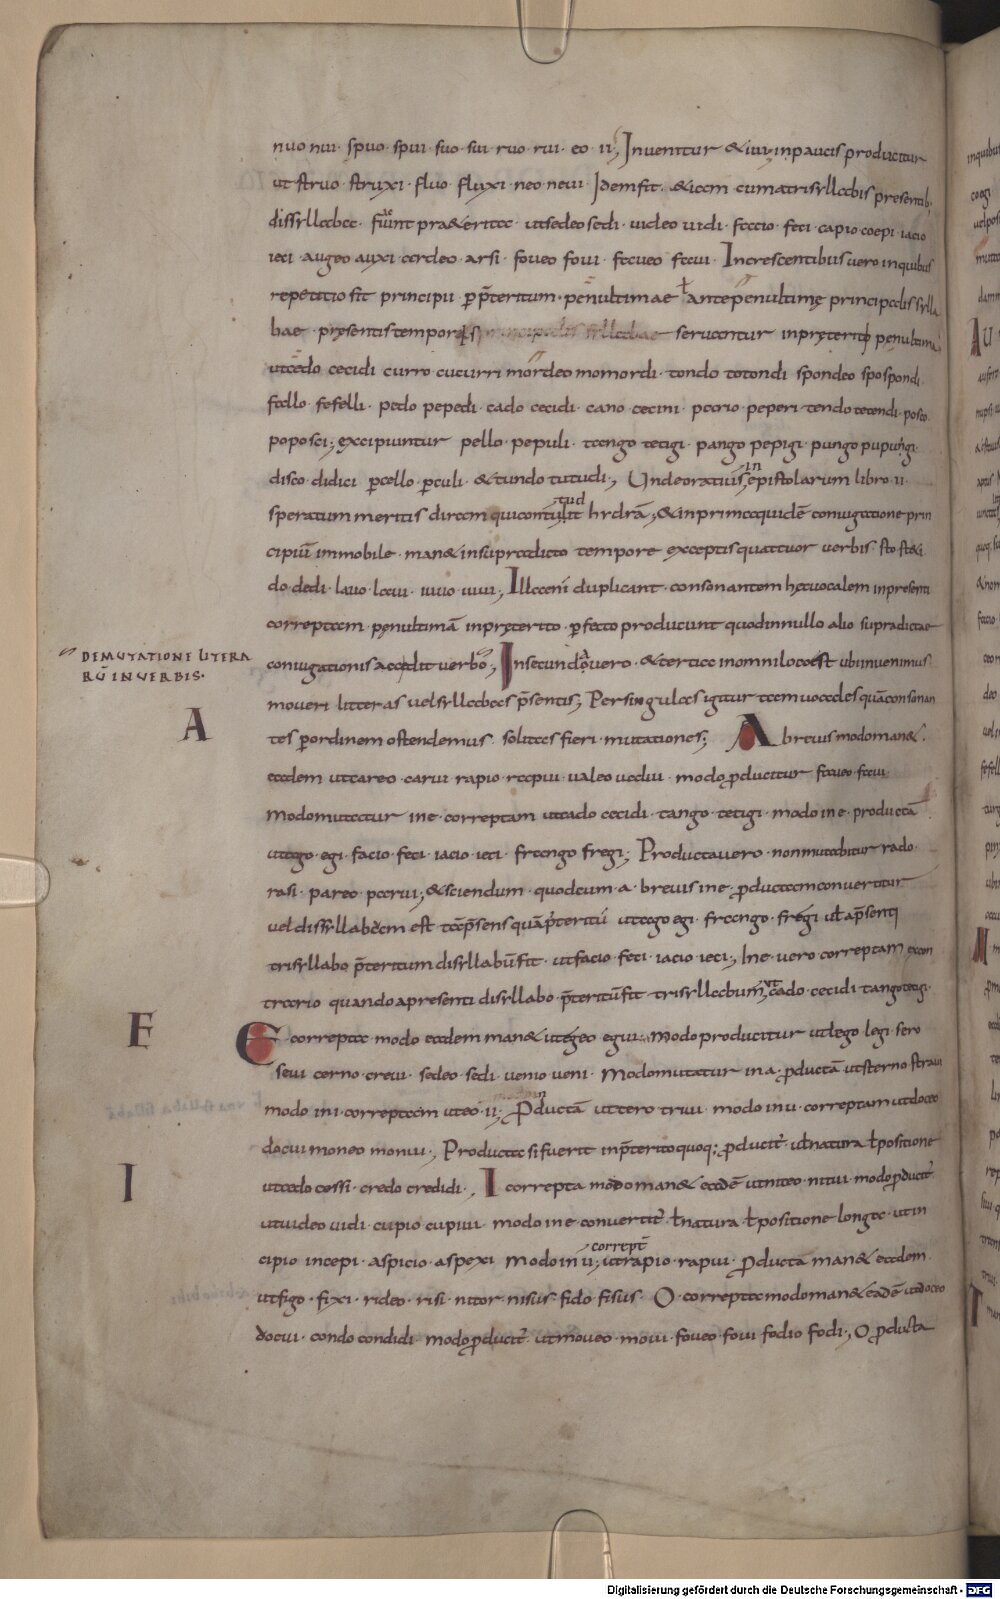 nuo nui · spuo · spui · suo · sui · ruo · rui · eo · ii; Inuenitur & iui, in paucis producitur
ut struo · struxi · fluo · fluxi · neo neui · Idem fit · & iam cum a trisyllabis presentib;
dissyllabae · fiunt pra&erita · ut sedeo sedi · uideo uidi · facio · feci · capio coepi · iacio
ieci · augeo auxi · ardeo · arsi · foueo foui · faueo faui · Increscentibus uero in quibus
repetitio fit principii p p̄teritum · penultimae ł antepenultimę principalis sylla
bae · pręsentis temporis seruantur in pręterito penultima
ut cedo cecidi curro cucurri mordeo momordi · tondo totondi spondeo spospondi
fallo · fefelli · pedo pepedi · cado cecidi · cano cecini · pario · peperi · tendo tetendi · posco
poposci; excipiuntur pello · pepuli · tango tetigi · pango pepigi · pungo pupungi
disco · didici p̱cello · p̱culi · & tundo tutudi; Unde oratius, in epistolarum libro · ii ·
speratum meritis diram qui contudit hydrā; & in prima quidē coniugatione prin
cipiū immobile · man& in supradicto tempore exceptis quattuor uerbis · sto steti
do · dedi · lauo · laui · iuuo · iuui; Illa eni duplicant · consonantem hęc uocalem in presenti
correptam · pęnultimā in pręterito · pfecto producunt quod in nullo alio supradictae
DE MUTATIONE LITERA
RŪ IN UERBIS ·
coniugationis accedit uerbo; In secunda uero · & tertia in omni loco est ubi inuenimus
moueri litteras uel syllabas p̄sentis; Per singulas igitur tam uocales quā consonan
A
tes p ordinem ostendemus · solitas fieri · mutationes; A breuis modo man&
eadem ut careo · carui rapio · rapui · ualeo ualui · modo p̱ducitur faueo faui
modo mutatur in e · correptam ut cado cecidi · tango · tetigi · modo in e · productā
ut ago · egi · facio · feci · iacio · ieci · frango fregi; Producta uero · non mutabitur rado ·
rasi · pareo · parui; & sciendum · quod cum · a · breuis in e · p̱ductam conuertitur
uel dissyllabum est tā p̄sens quā p̄teritū ut ago egi · frango · fregi · uł a p̄senti
trisyllabo p̄teritum disyllabū fit · ut facio · feci · iacio · ieci; In e · uero correptam e con
trario quando a presenti disyllabo · p̄teritū fit · trisyllabum, ut cado · cecidi · tango tetigi ·
E
E correpta modo eadem man& ut egeo egui · Modo producitur ut lego · legi · sero
seui cerno · creui · sedeo · sedi · uenio ueni · Modo mutatur in a · p̱ductā ut sterno straui
modo in i · correptam ut eo · ii · In p̱ductā ut tero triui · modo in u · correptam ut doceo
docui moneo monui; Producta si fuerit in p̄terito quoq; p̱ducit̄ · uł natura ł positione
I
ut cedo cessi · credo credidi · I correpta modo man& eadē ut niteo · nitui · modo p̱ducit̄
ut uideo uidi · cupio cupiui · modo in e conuertit̄ ł natura ł positione longa · ut in
cipio incepi · aspicio · aspexi modo in u correptā; ut rapio · rapui · p̱ducta man& eadem
ut figo · fixi · rideo · risi · nitor · nisus · fido fisus · O · correpta modo man& eadē ut doceo
docui · condo condidi · modo p̱ducit̄ · ut moueo · moui · foueo · foui fodio fodi; O p̱ducta
Digitalisierung gefördert durch die Deutsche Forschungsgemeinschaft - DFG